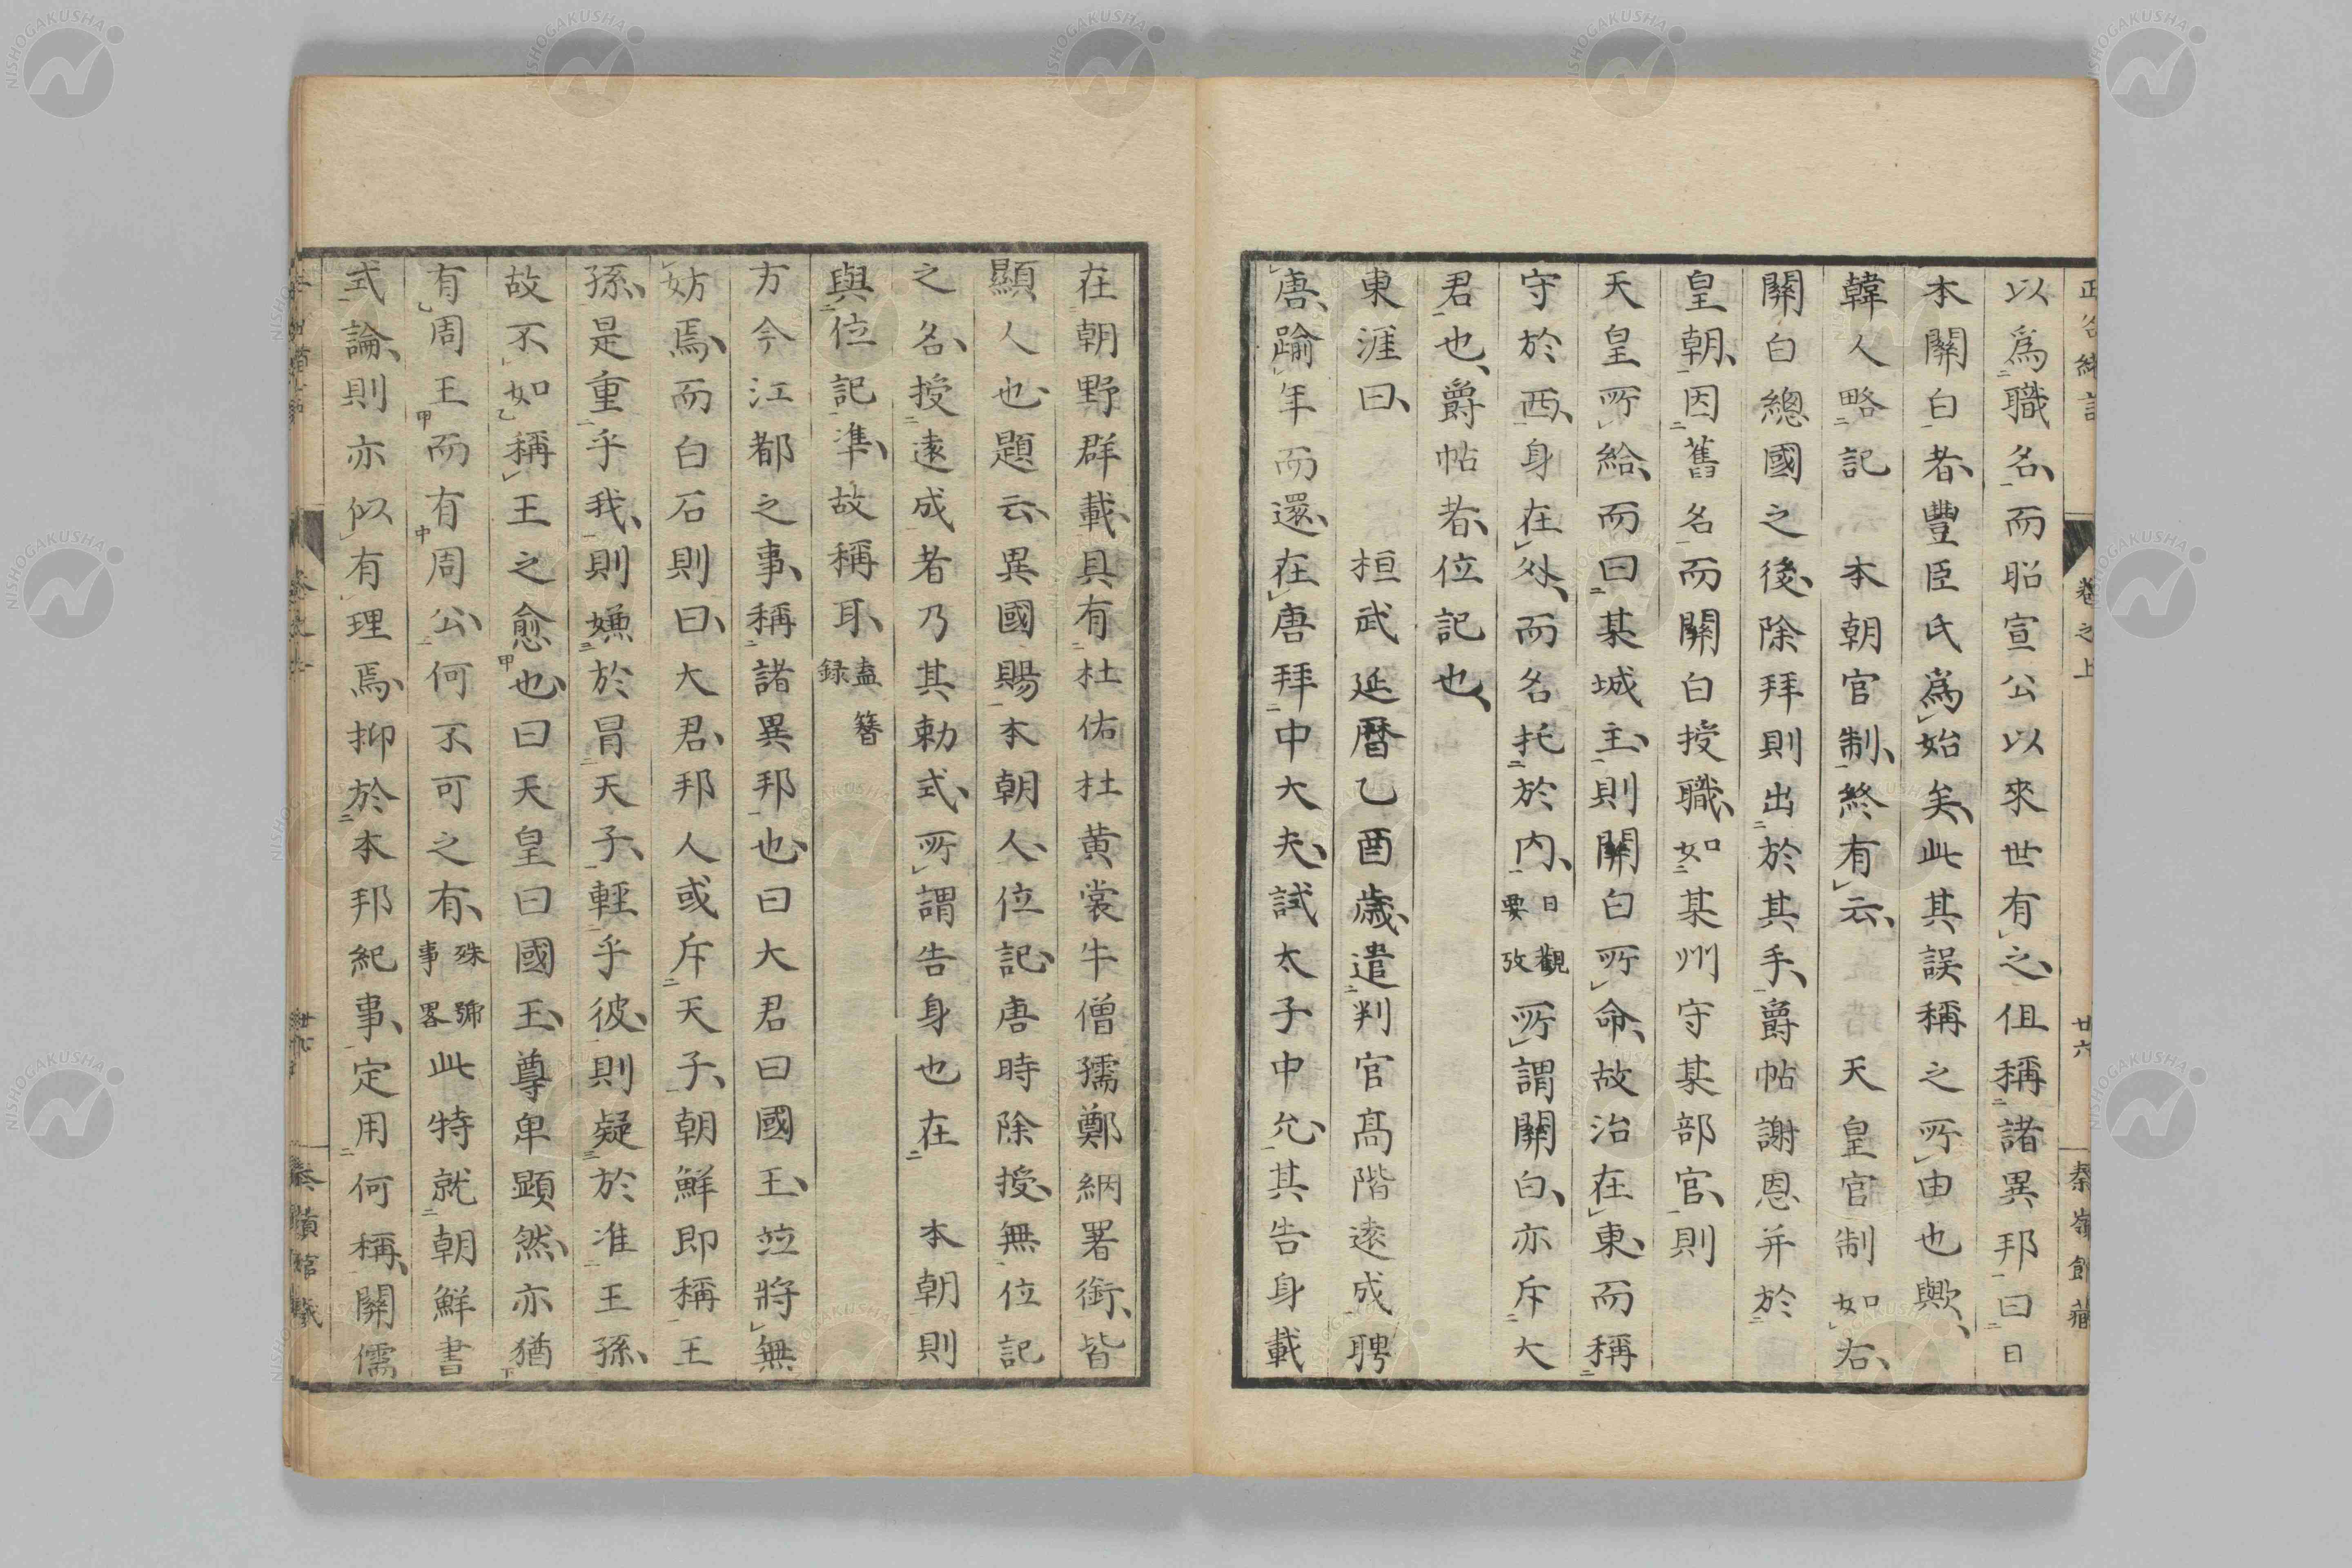 以爲職名而昭宣公以來世有之但稱諸異邦曰日
本關白者豐臣氏爲始矣此其誤稱之所由也歟
韓人略記云 本朝官制終有云 天皇官制如右
關白總國之後除拜則出於其手爵帖謝恩并於
皇朝因舊名而關白授職如某州守某部官則
天皇所給而曰某城主則關白所命故治在東而稱
守於西身在外而名托於内日觀要攷所謂關白亦斥大
君也爵帖者位記也
東涯曰 桓武延曆乙酉歲遣判官高階遠成聘
唐踰年而還在唐拜中大夫試太子中允其告身載
在朝野群載具有杜佑杜黃裳牛僧孺鄭絪署銜皆
顯人也題云異國賜本朝人位記唐時除授無位記
之名授遠成者乃其勅式所謂告身也在 本朝則
與位記準故稱耳盍簪録
方今江都之事稱諸異邦也曰大君曰國王竝將無
妨焉而白石則曰大君邦人或斥天子朝鮮即稱王
孫是重乎我則嫌於冐天子輕乎彼則疑於准王孫
故不如稱王之愈也曰天皇曰國王尊卑顕然亦猶
有周王而有周公何不可之有殊號事畧此特就朝鮮書
式論則亦似有理焉抑於本邦紀事定用何稱關儒
卷之上
廿六
秦嶺館藏
NISHOGAKUSHA